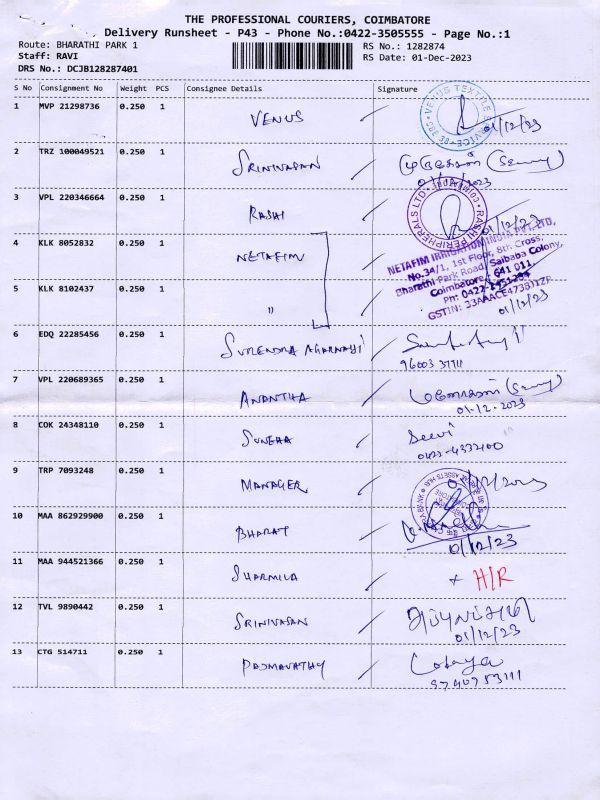 THE PROFESSIONAL COURIERS, COIMBATORE
Delivery Runsheet - P43 - Phone No.:0422-3505555 - Page No.:1
Route: BHARATHI PARK 1
RS No.: 1282874
Staff: RAVI
RS Date: 01-Dec-2023
DRS No.: DCJB128287401
S No Consignment No Weight PCS Consignee Details Signature
1 MVP 21298736 0.250 1 VENUS
VENUS TEXTILE SERVICE
01/12/23
2 TRZ 100049521 0.250 1 SRINIVASAN
3 VPL 220346664 0.250 1 RASHI
RASHI PERIPHERALS LTD.
COIMBATORE
01/12/23
4 KLK 8052832 0.250 1 NETAFIM
NETAFIM IRRIGATION INDIA PVT. LTD,
No.34/1, 1st Floor, 8th Cross,
Bharathi Park Road, Saibaba Colony,
Coimbatore - 641 011.
5 KLK 8102437 0.250 1 "
01/12/23
6 EDQ 22285456 0.250 1
7 VPL 220689365 0.250 1 ANANTHA
01-12-2023
8 COK 24348110 0.250 1 SUNEHA
9 TRP 7093248 0.250 1 MANAGER
10 MAA 862929900 0.250 1 BHARAT
01/12/23
11 MAA 944521366 0.250 1 SHARMILA
H/R
12 TVL 9890442 0.250 1 SRINIVASAN
01/12/23
13 CTG 514711 0.250 1 PADMAVATHY